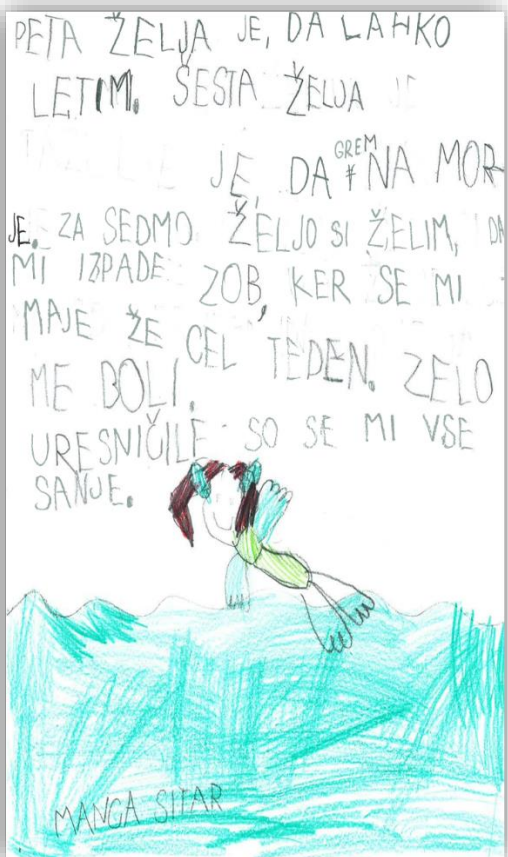 PETA ŽELJA JE, DA LAHKO
LETIM. ŠESTA ŽELJA
JE, DA GREM NA MOR-
JE. ZA SEDMO ŽELJO SI ŽELIM, DA
MI IZPADE ZOB, KER SE MI
MAJE ŽE CEL TEDEN. ZELO
ME BOLI.
URESNIČILE SO SE MI VSE
SANJE.
MANCA SITAR